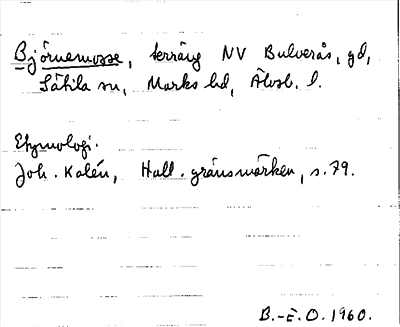 Björnemosse, terräng NV Bulverås, gd,
Sätila sn, Marks hd, Älvsb. l.
Etymologi.
Joh. Kalén, Hall. gränsmärken, s. 79.
B.-E. O. 1960.